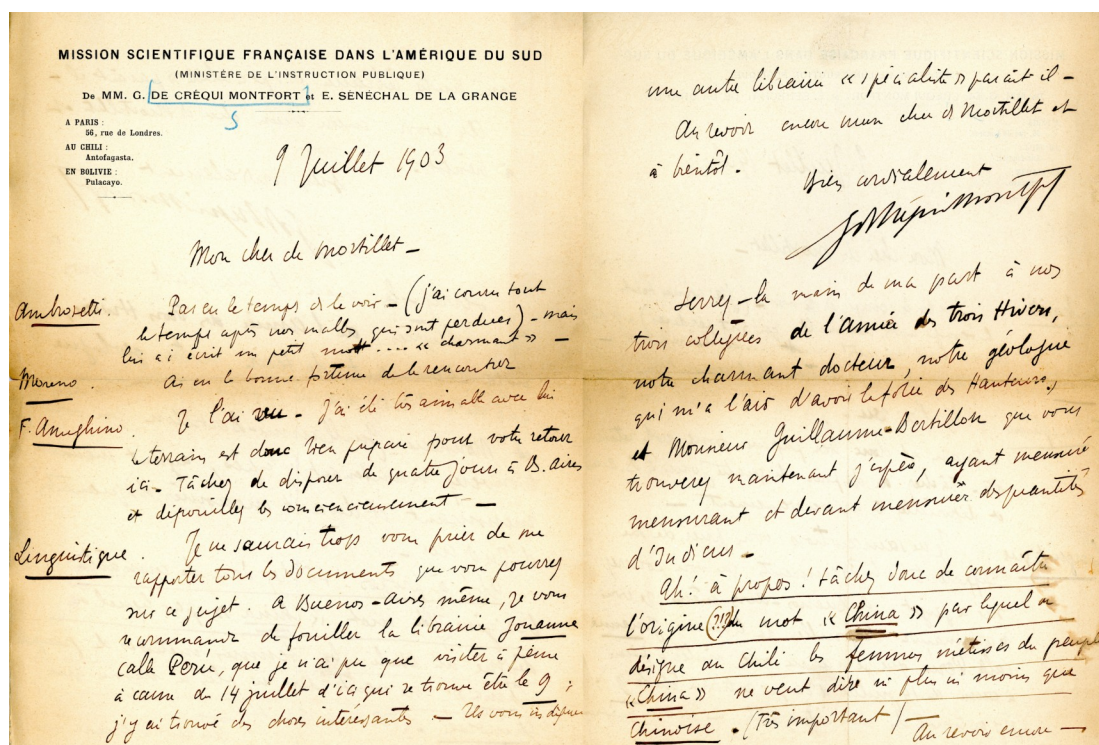 MISSION SCIENTIFIQUE FRANÇAISE DANS L'AMÉRIQUE DU SUD
(MINISTÈRE DE L'INSTRUCTION PUBLIQUE)
De MM. G. DE CRÉQUI MONTFORT et E. SÉNÉCHAL DE LA GRANGE
S
A PARIS :
56, rue de Londres.
AU CHILI :
Antofagasta.
EN BOLIVIE :
Pulacayo.
9 Juillet 1903
Mon cher de Mortillet –
Ambrosetti. Pas eu le temps de le voir – (j'ai couru tout
le temps après nos malles qui sont perdues) – mais
lui ai écrit un petit mot .... « charmant » –
Moreno. Ai eu la bonne fortune de le rencontrer
F. Ameghino. Je l'ai vu – j'ai été très aimable avec lui
le terrain est donc bien préparé pour votre retour
ici – Tâchez de disposer de quatre jours à B. Aires
et dépouillez les consciencieusement –
Linguistique. Je ne saurais trop vous prier de me
rapporter tous les documents que vous pourrez
sur ce sujet. A Buenos-Aires même, je vous
recommande de fouiller la librairie Jouanne
calle Perú, que je n'ai pu que visiter à peine
à cause du 14 juillet d'ici qui se trouve être le 9 ;
j'y ai trouvé des choses intéressantes –
une autre librairie « spécialiste » paraît il –
Au revoir encore mon cher de Mortillet et
à bientôt. Bien cordialement
Serrez – la main de ma part à nos
trois collègues de l'Année des trois Hivers,
notre charmant docteur, notre géologue
qui m'a l'air d'avoir la folie des Hauteurs,
et Monsieur Guillaume-Bertillon que vous
trouverez maintenant j'espère, ayant mensuré
mensurant et devant mensurer des quantités
d'Indiens –
Ah ! à propos ! tâchez donc de connaître
l'origine (?!?) du mot « China » par lequel on
désigne au Chili les femmes métisses du peuple
« China » ne veut dire ni plus ni moins que
Chinoise. (Très important)
Au revoir encore –